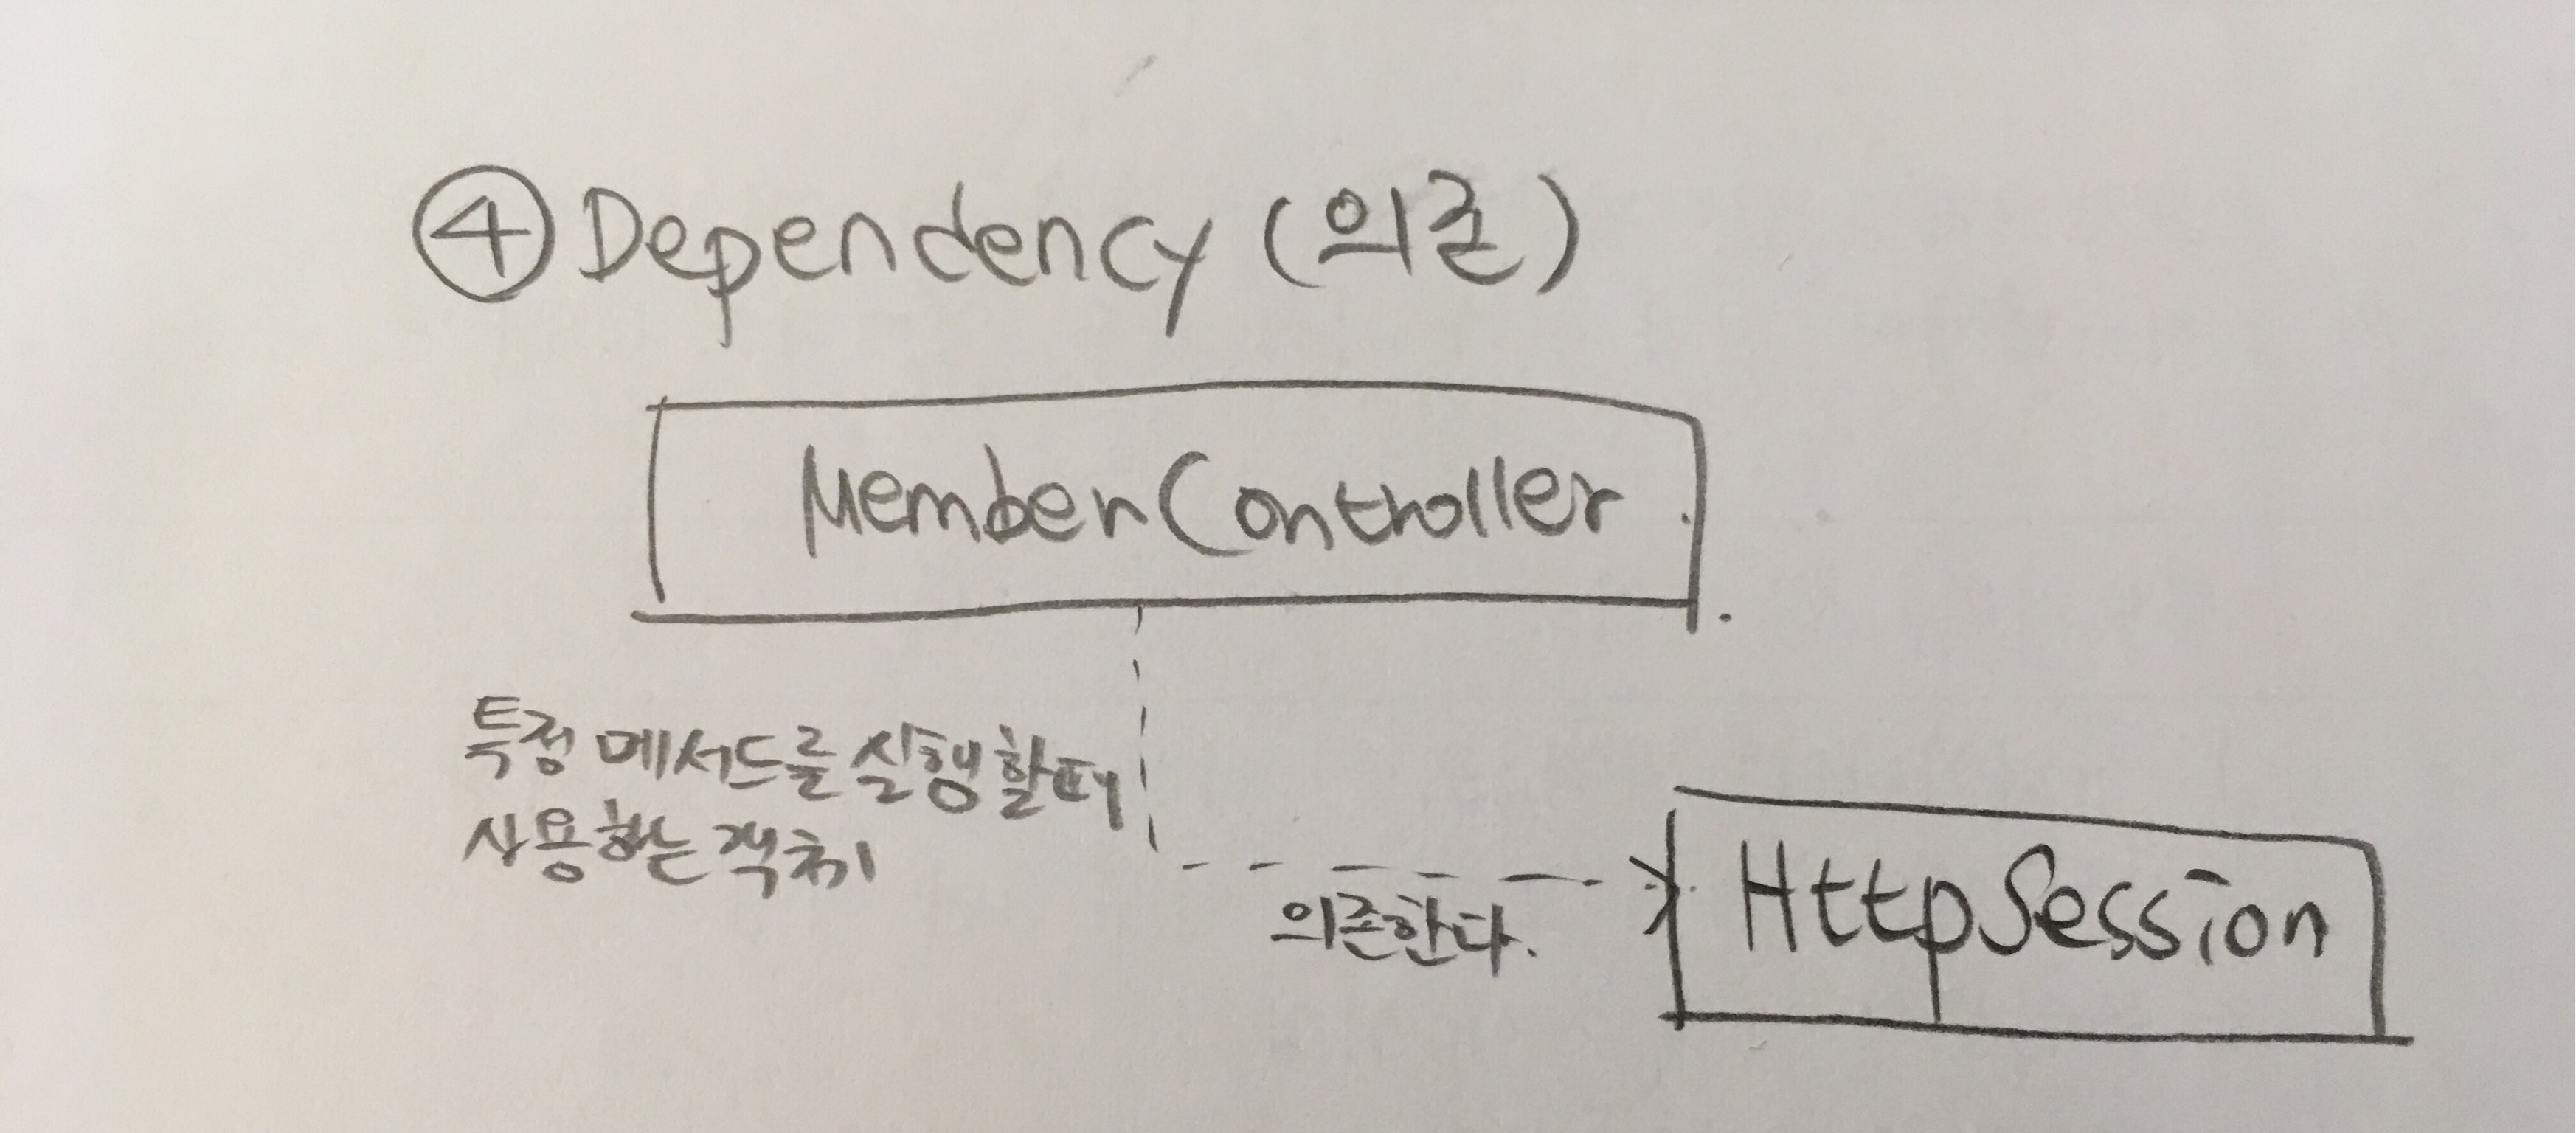 ④ Dependency (의존)
MemberController
특정 메서드를 실행할때
사용하는 객체
의존한다.
HttpSession